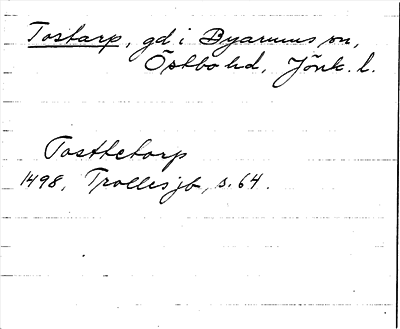 Tostarp, gd i Byarums sn,
Östbo hd, Jönk. l.
Tosthetorp
1498, Trolles jb, s. 64.